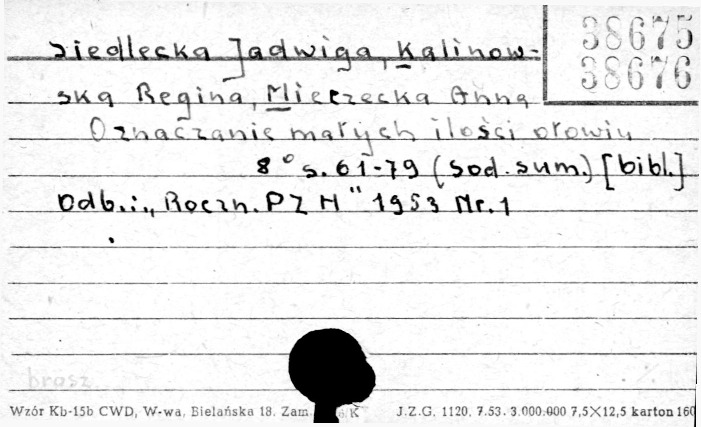 38675
38676
Siedlecka Jadwiga, Kalinow-
ska Regina, Mierzecka Anna
Oznaczanie małych ilości ołowiu
8° s. 61-79 (sod. sum.) [bibl.]
Odb.: „Roczn. PZH" 1953 Nr. 1
brosz.
Wzór Kb-15b CWD, W-wa, Bielańska 18. Zam. /K J.Z.G. 1120. 7.53. 3.000.000 7,5×12,5 karton 160